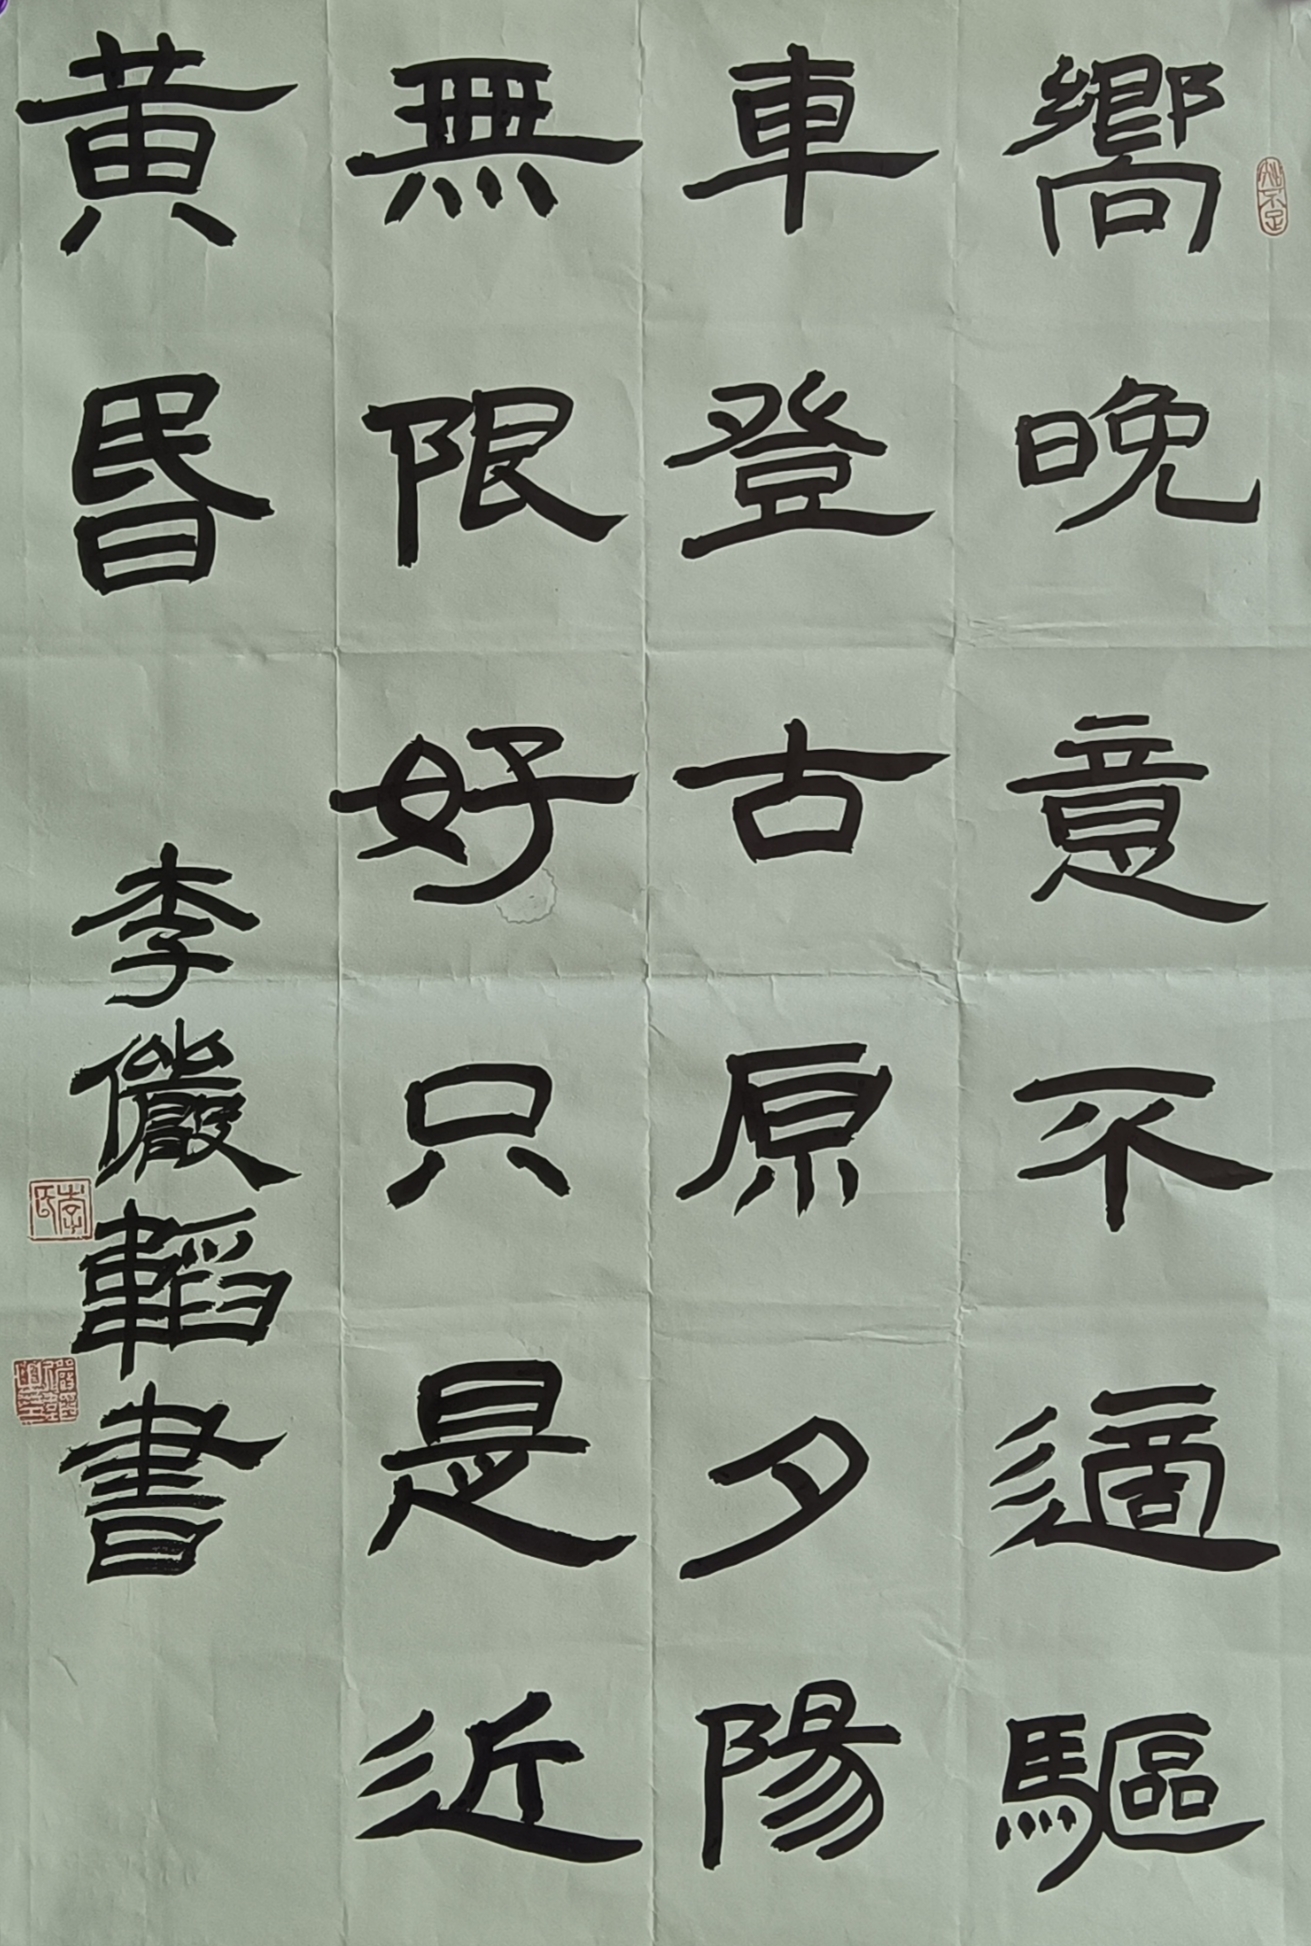 嚮晚意不適驅
車登古原夕陽
無限好只是近
黃昏
李儼韜書
知不足
李氏